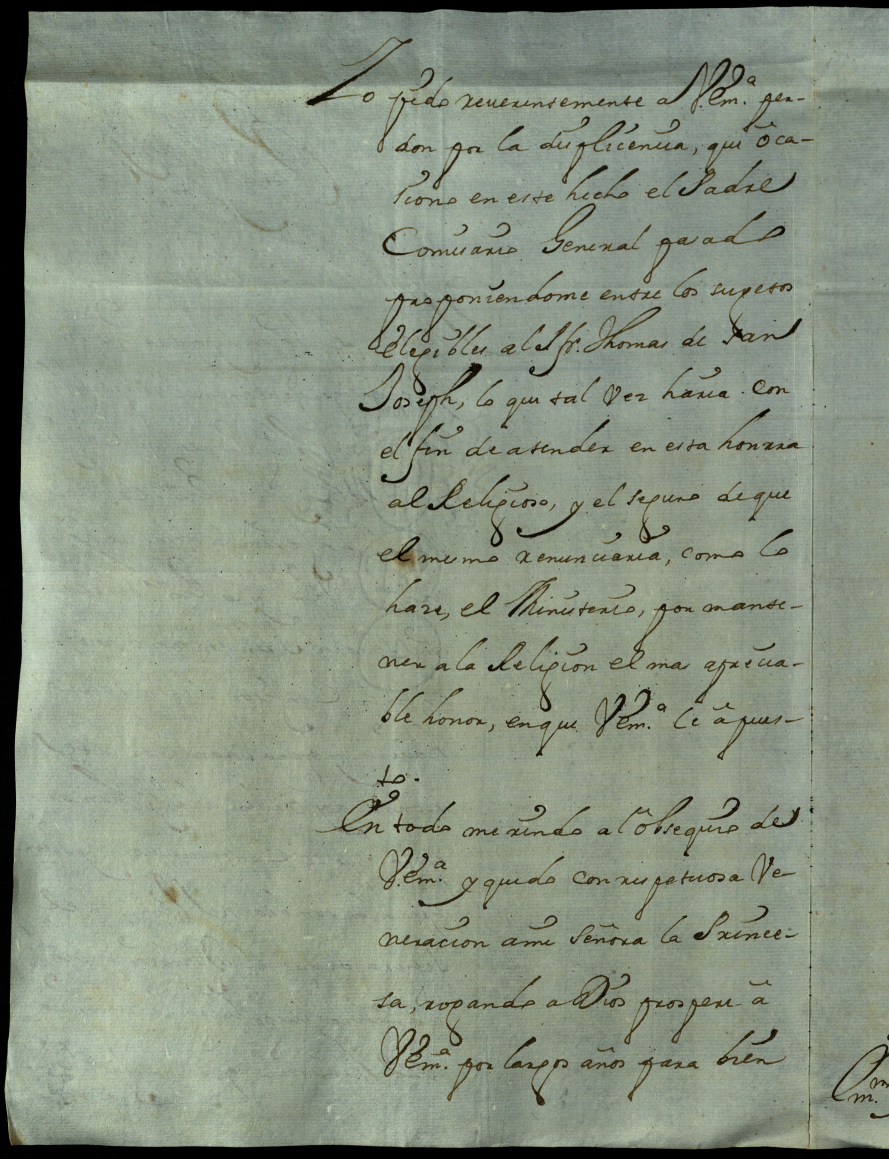 Yo pido reverentemente a V.em.ª per-
don por la duplicencia, que òca-
siono en este hecho el Padre
Comisario General pasado
proponiendome entre los sugetos
elegibles al P. fr. Thomas de San
Joseph, lo que tal vez haria con
el fin de atender en esta honrra
al Religioso, y el seguro de que
el mismo renunciaria, como lo
hare, el Ministerio, por mante-
ner a la Religion el mas aprecia-
ble honor, en que V.em.ª le â pues-
to.
En todo me rindo al obsequio de
V.em.ª y quedo con respetuosa Ve-
neracion a mi Señora la Prince-
sa, rogando a Dios prospere â
V.em.ª por largos años para bien